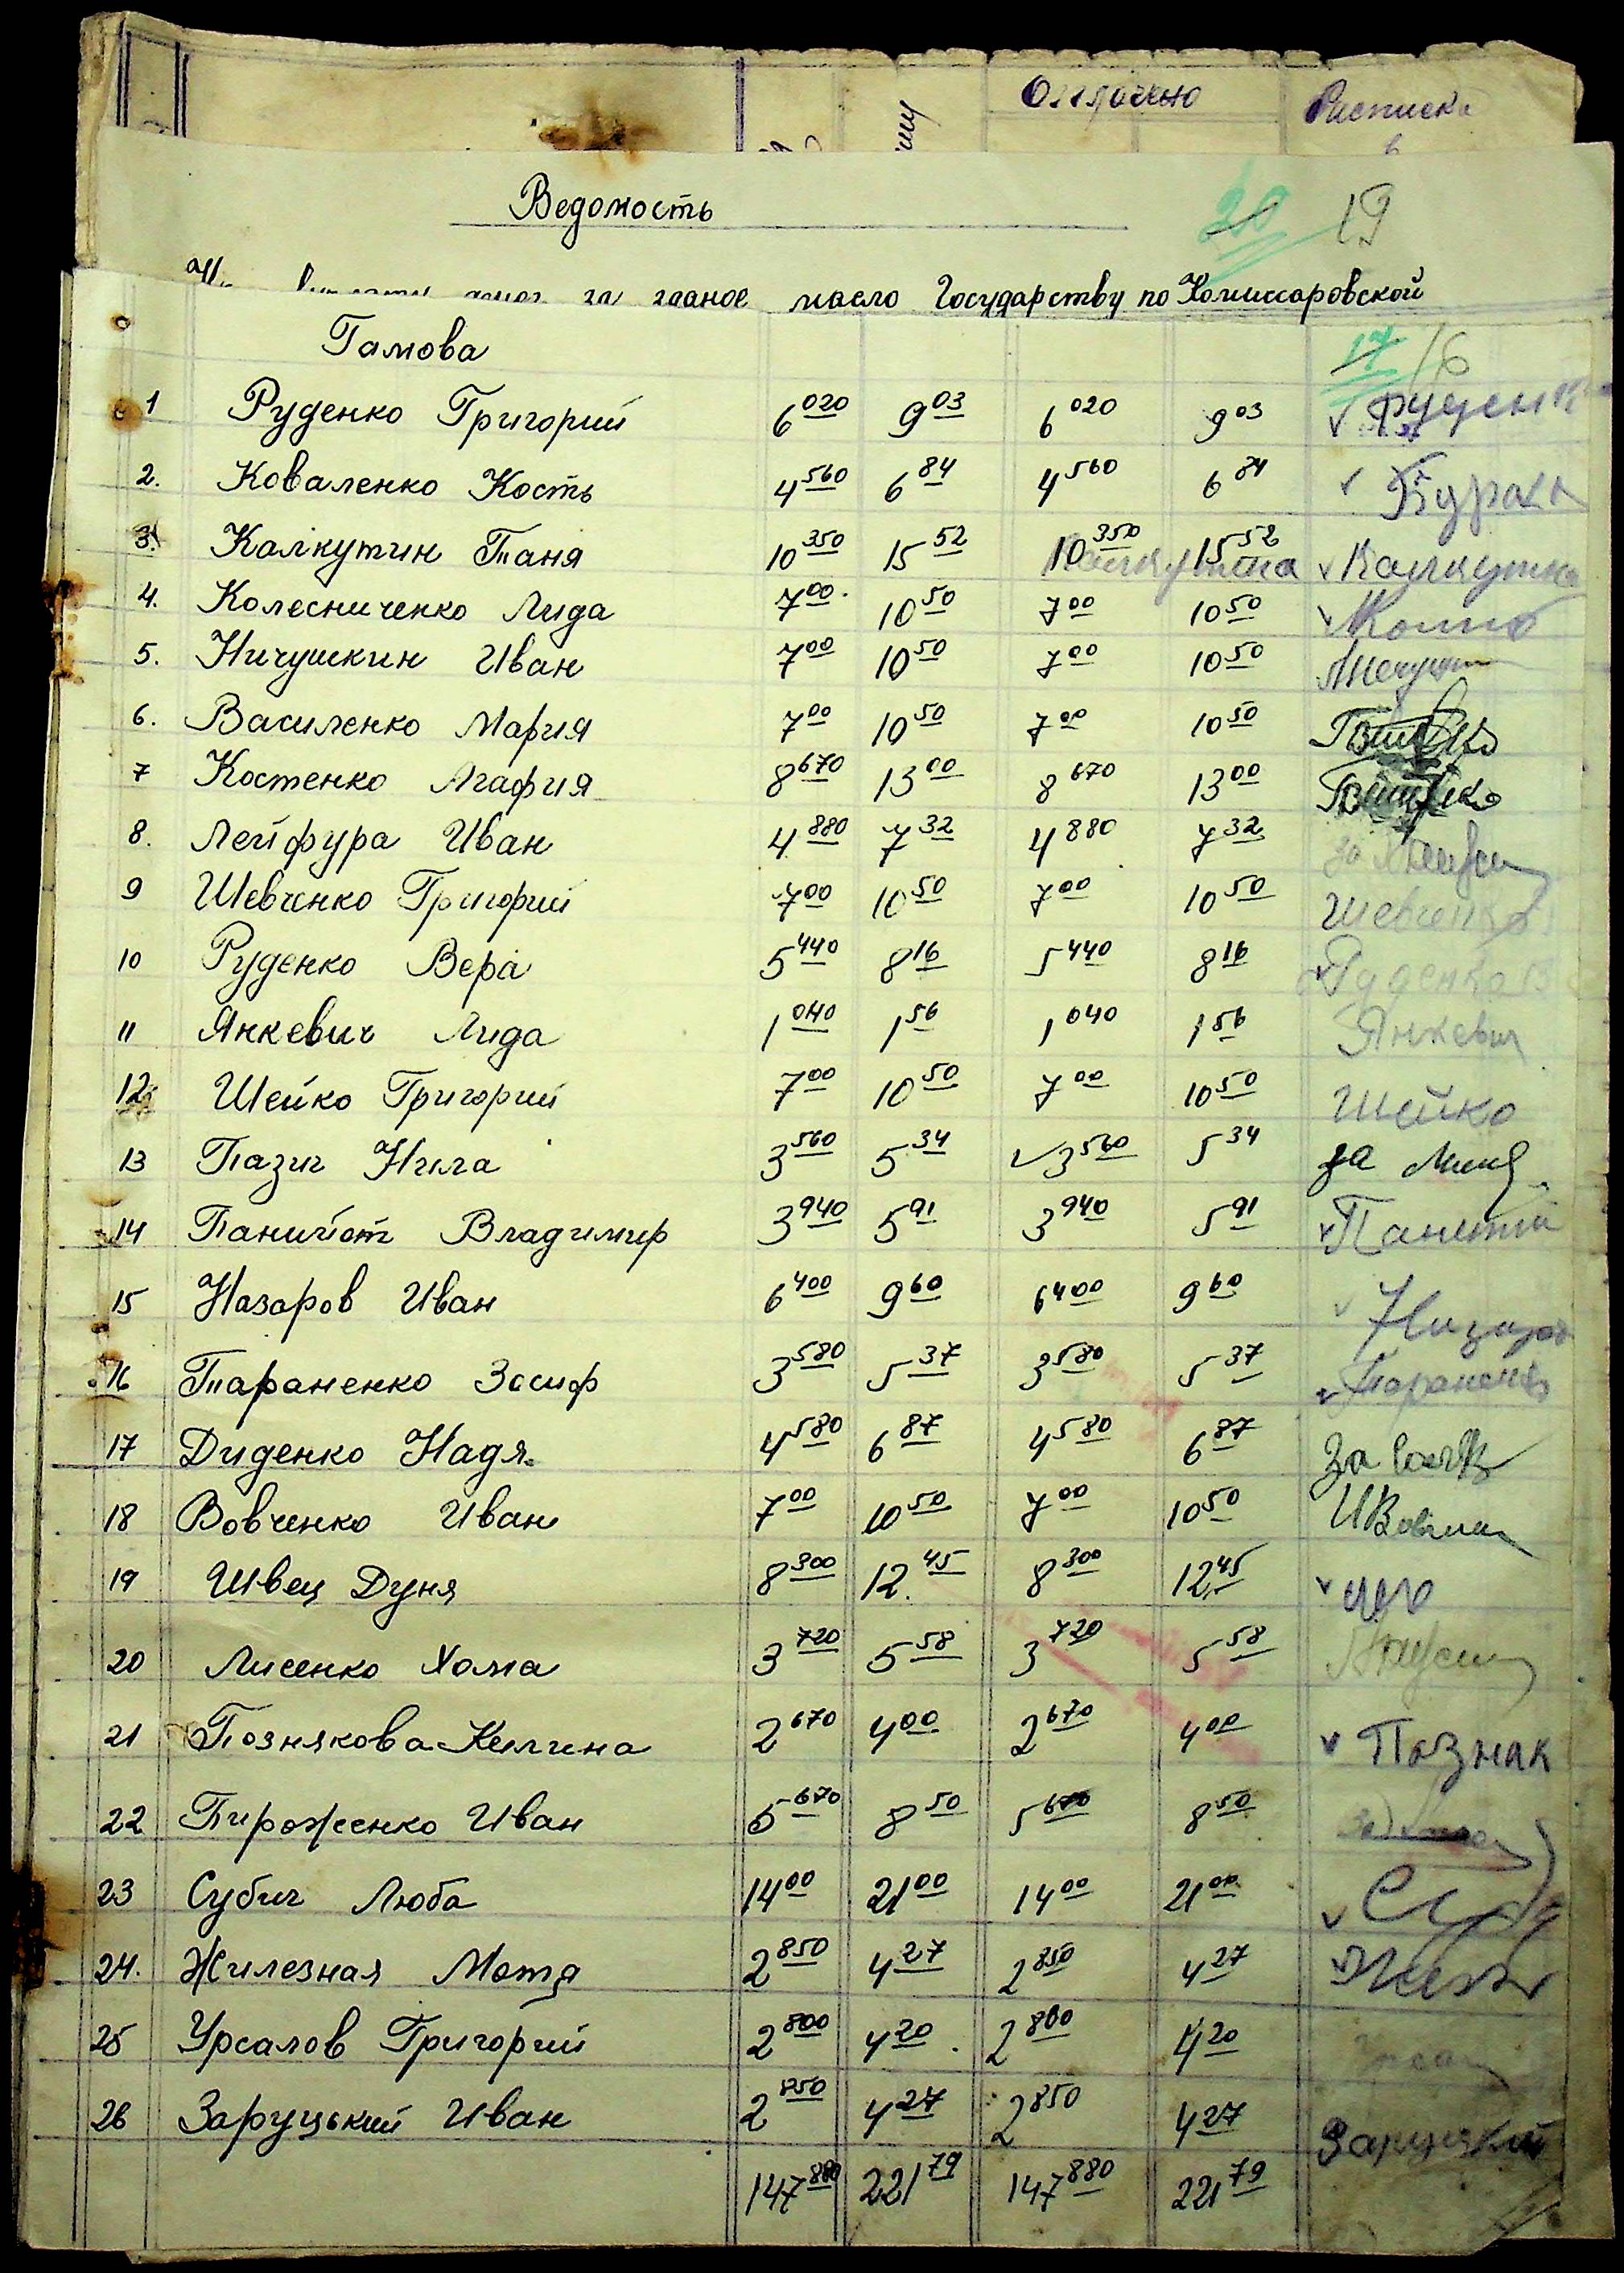 Оплачено Расписка
в
Ведомость
20 19
денег за зданое масло Государству по Комиссаровской
Гамова 17 16
1 Руденко Григорий 6020 903 6020 903 ✓
2. Коваленко Кость 4560 684 4560 684 ✓
3. Калкутин Таня 10350 1552 10350 1552 ✓
4. Колесниченко Лида 700 1050 700 1050
5. Ничушкин Иван 700 1050 700 1050
6. Василенко Мария 700 1050 700 1050
7 Костенко Агафия 8670 1300 8670 1300
8. Лейфура Иван 4880 732 4880 732 за
9 Шевченко Григорий 700 1050 700 1050 Шевченко
10 Руденко Вера 5440 816 5440 816 ✓ Руденко В
11 Янкевич Лида 1040 156 1040 156 Янкевич
12 Шейко Григорий 700 1050 700 1050 Шейко
13 Пазич Нила 3560 534 ✓ 3560 534 за
14 Панийот Владимир 3940 591 3940 591 ✓
15 Назаров Иван 6400 960 6400 960 ✓
16 Тараненко Зосиф 3580 537 3580 537
17 Диденко Надя 4580 687 4580 687 За
18 Вовченко Иван 700 1050 700 1050
19 Швец Дуня 8300 1245 8300 1245 ✓
20 Лисенко Хома 3720 558 3720 558
21 Познякова Келина 2670 400 2670 400 ✓ Познак
22 Пироженко Иван 5670 850 5670 850
23 Субич Люба 1400 2100 1400 2100 ✓
24. Жилезная Мотя 2850 427 2850 427 ✓
25 Урсалов Григорий 2800 420 2800 420
26 Заруцький Иван 2850 427 2850 427
147880 22179 147880 22179